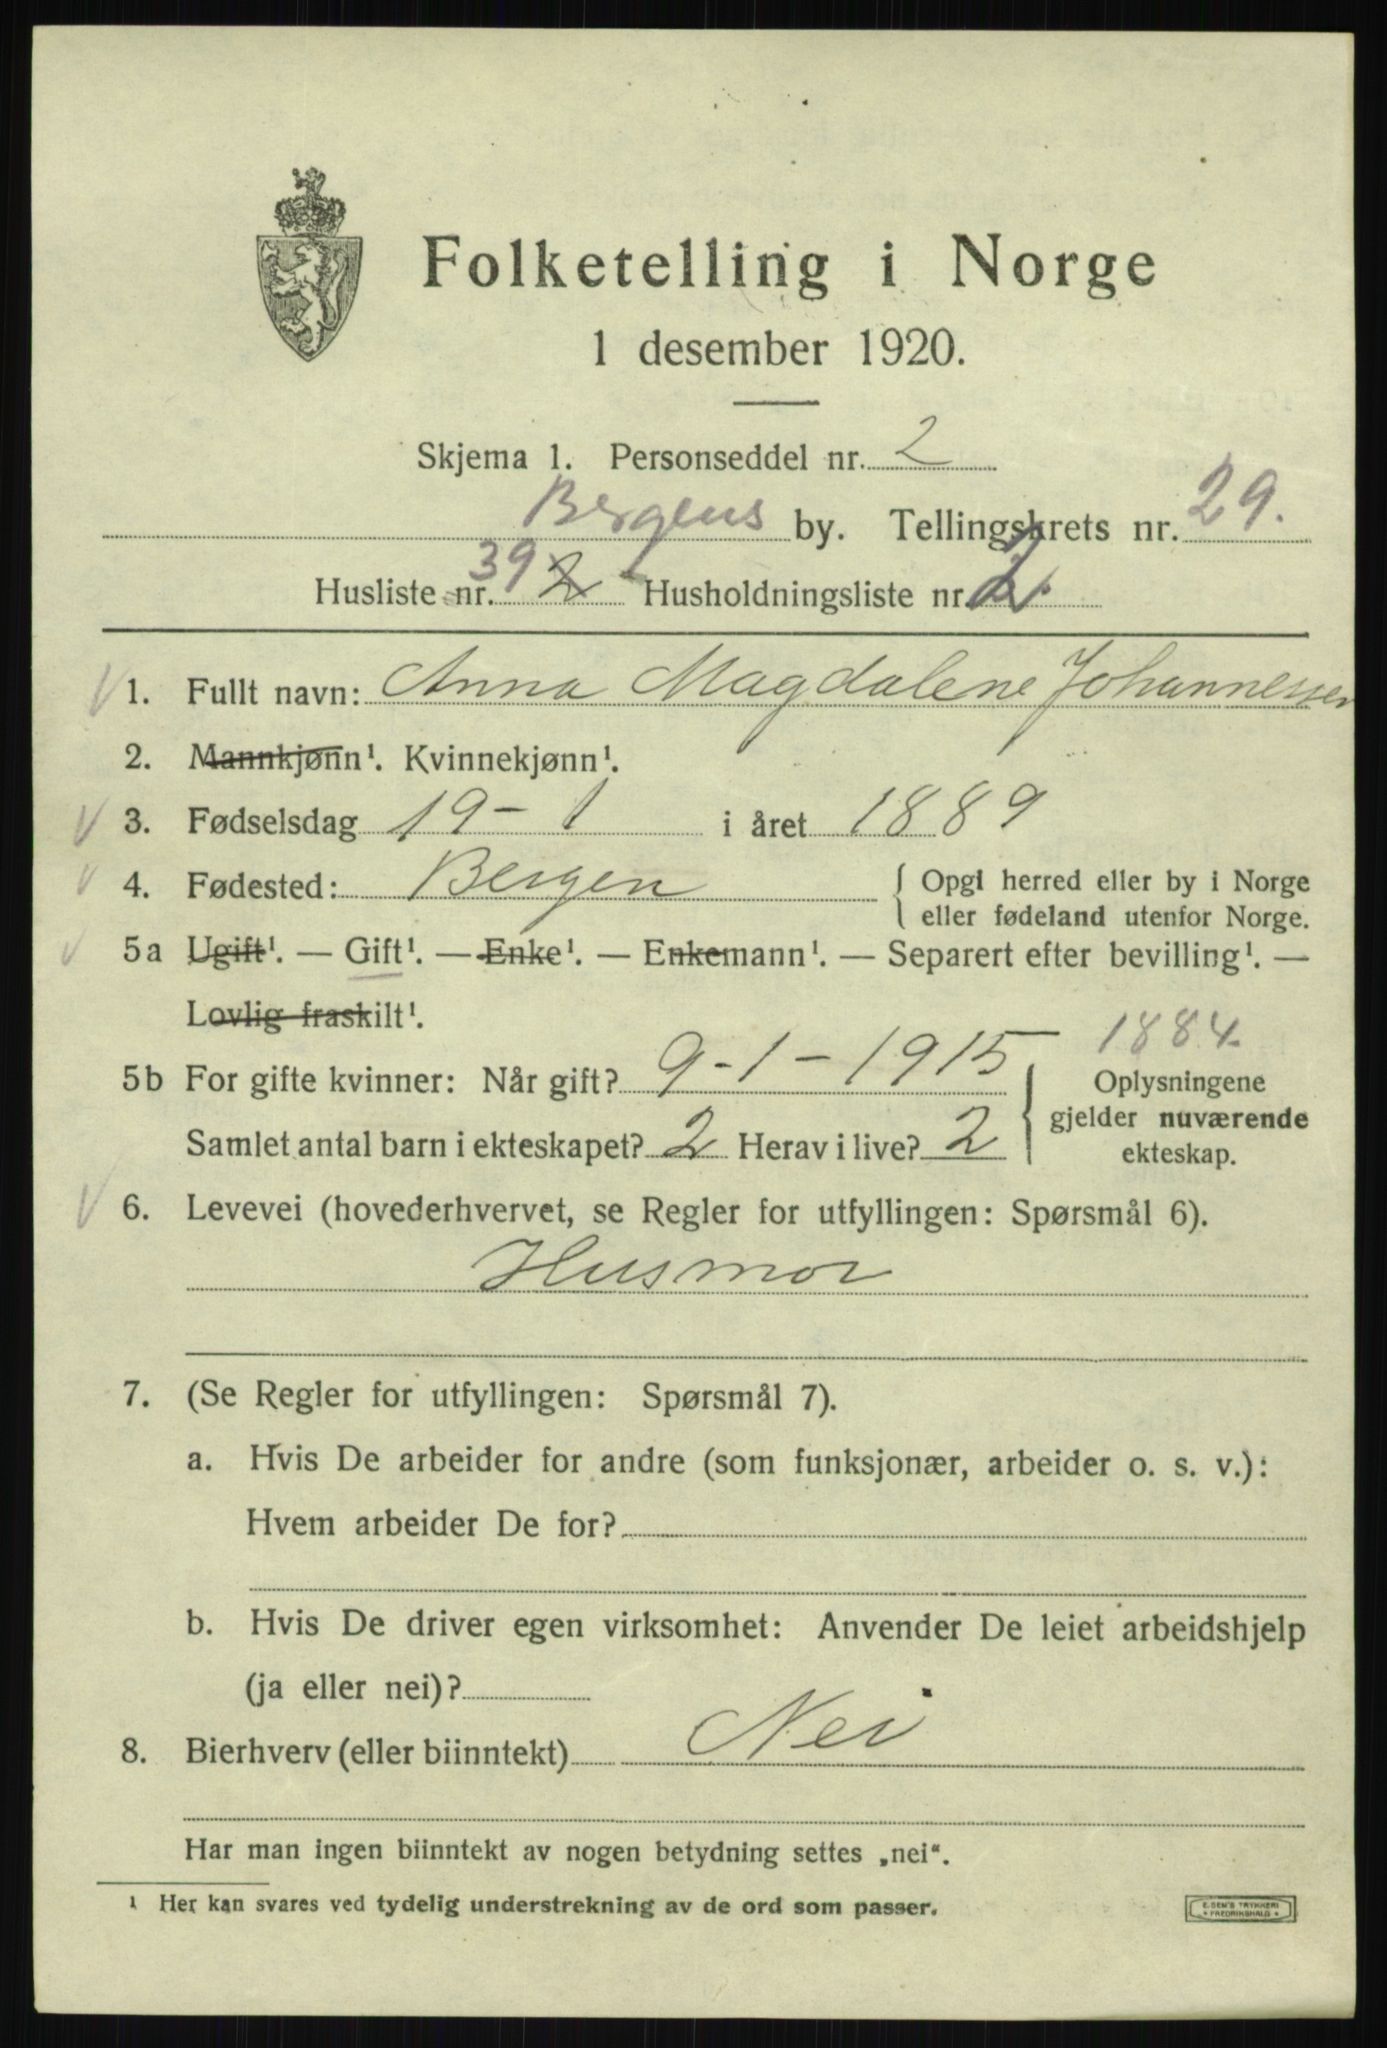 Folketelling i Norge
1 desember 1920.
Skjema 1. Personseddel nr. 2
Bergens by. Tellingskrets nr. 29.
Husliste nr. 39 2 Husholdningsliste nr. 2.
1. Fullt navn: Anna Magdalene Johannessen
2. Mannkjønn¹. Kvinnekjønn¹.
3. Fødselsdag 19 - 1 i året 1889
4. Fødested: Bergen { Opgi herred eller by i Norge
eller fødeland utenfor Norge.
5a Ugift¹. — Gift¹. — Enke¹. — Enkemann¹. — Separert efter bevilling¹. —
Lovlig fraskilt¹.
1884
5b For gifte kvinner: Når gift? 9-1-1915 Oplysningene
gjelder nuværende
Samlet antal barn i ekteskapet? 2 Herav i live? 2 ekteskap.
6. Levevei (hovederhvervet, se Regler for utfyllingen: Spørsmål 6).
Husmor
7. (Se Regler for utfyllingen: Spørsmål 7).
a. Hvis De arbeider for andre (som funksjonær, arbeider o. s. v.):
Hvem arbeider De for?
b. Hvis De driver egen virksomhet: Anvender De leiet arbeidshjelp
(ja eller nei)?
8. Bierhverv (eller biinntekt) Nei
Har man ingen biinntekt av nogen betydning settes „nei“.
¹ Her kan svares ved tydelig understrekning av de ord som passer.
E. SEM'S TRYKKERI
FREDRIKSHALD